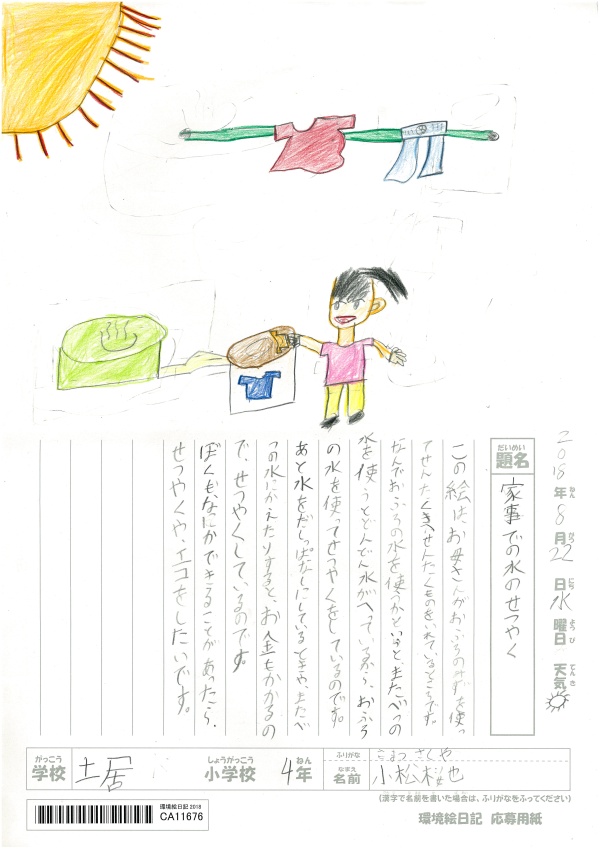 2018年8月22日水曜日 天気
ねん がつ にち ようび てんき
だいめい
題名
家事での水のせつやく
この絵は、お母さんがおふろのみずを使っ
てせんたくきへせんたくものをいれているところです。
なんでおふろの水を使うかというと、またべつの
水を使うとどんどん水がへっているから、おふろ
の水を使ってせつやくをしているのです。
あと水をだしっぱなしにしているときや、またべ
つの水にかえたりすると、お金もかかるの
で、せつやくしているのです。
ぼくも、なにかできることがあったら、
せつやくや、エコをしたいです。
がっこう しょうがっこう ねん ふりがな こまつ さくや
学校 土居 小学校 4年 なまえ 名前 小松 也
(漢字で名前を書いた場合は、ふりがなをふってください)
環境絵日記 2018
CA11676
環境絵日記 応募用紙